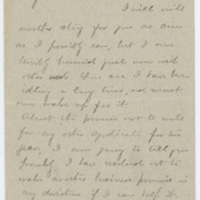 I will write
another story for you as soon
as I possibly can, but I am
terribly burdened just now with
other work. You see I have been
idling a long time, and must
now make up for it.
About the promise not to write
for any other syndicate for two
years, I am going to tell you
frankly, I have resolved not to
make another business promise in
any direction if I can help it.